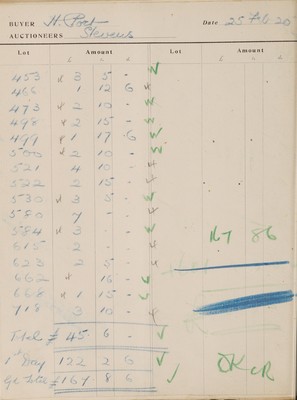 BUYER H. Post Date 25 Feb 20
AUCTIONEERS Stevens
Lot Amount Lot Amount
£ s d £ s d
453 x 3 5 -
466 1 12 6
473 x 2 10 -
498 x 2 15 -
499 x 1 17 6
500 x 2 10 -
521 4 10 -
522 2 15 -
530 x 3 5 -
580 7 - -
584 x 3 - - 167 8 6
615 2 - -
623 2 5 -
662 x 16 -
668 x 1 15 -
718 3 10 -
Total £ 45 6 -
1st Day 122 2 6
Gd Total £ 167 8 6 OK